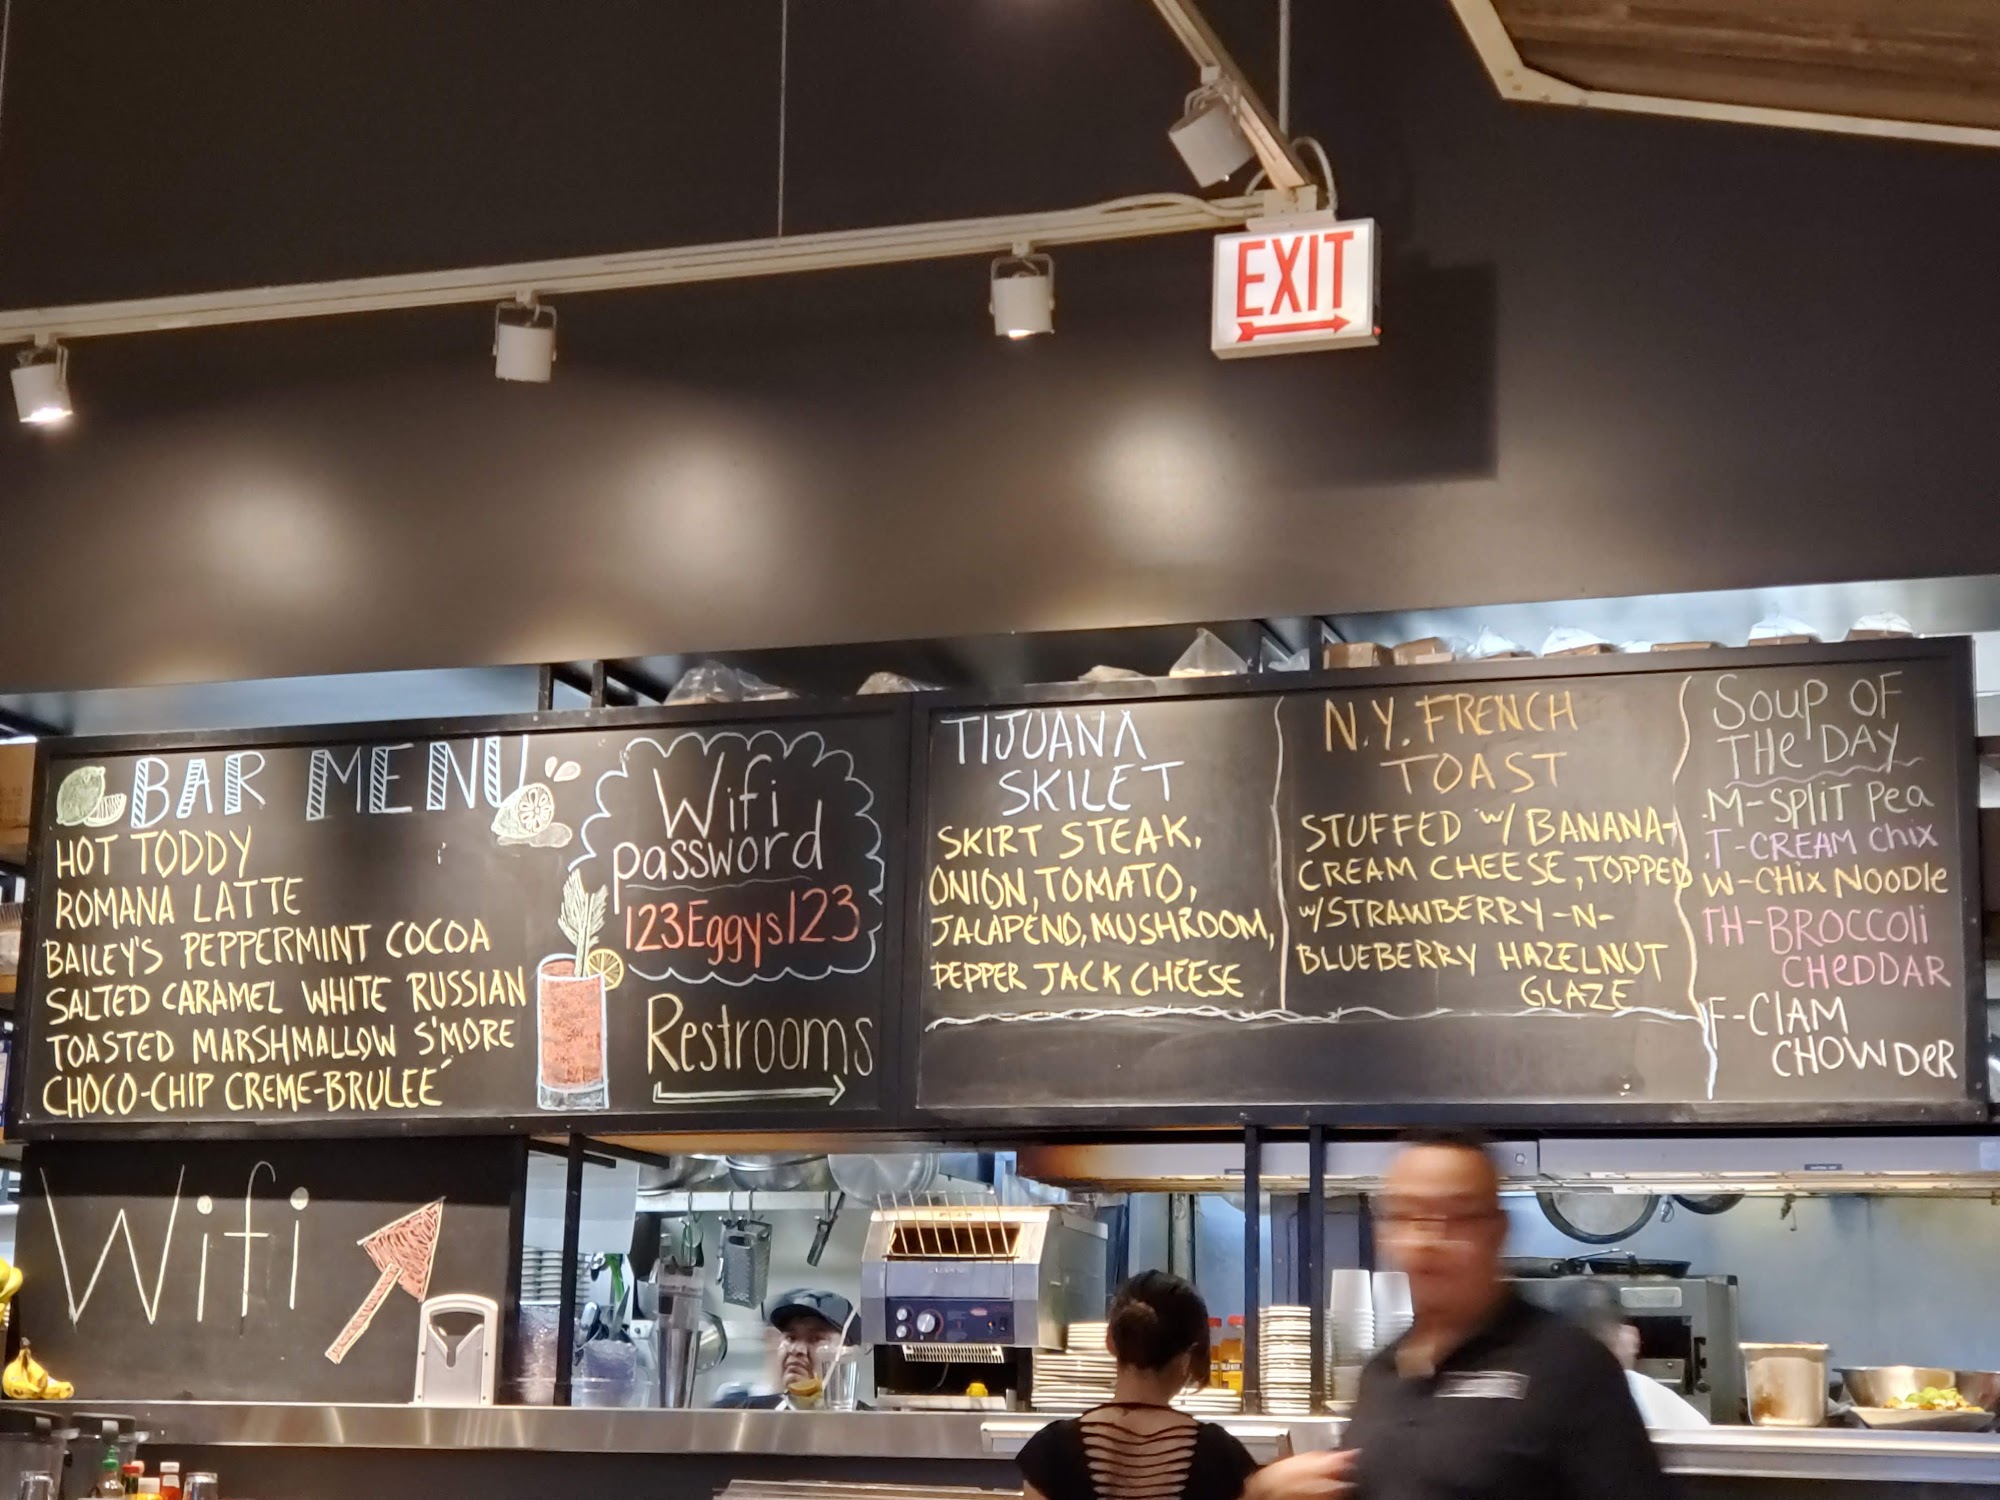 EXIT
BAR MENU
HOT TODDY
ROMANA LATTE
BAILEY'S PEPPERMINT COCOA
SALTED CARAMEL WHITE RUSSIAN
TOASTED MARSHMALLOW S'MORE
CHOCO-CHIP CREME-BRULEÉ
Wifi
password
123Eggys123
Restrooms
TIJUANA
SKILET
SKIRT STEAK,
ONION, TOMATO,
JALAPENO, MUSHROOM,
PEPPER JACK CHEESE
N.Y. FRENCH
TOAST
STUFFED w/ BANANA-
CREAM CHEESE, TOPPED
w/STRAWBERRY-N-
BLUEBERRY HAZELNUT
GLAZE
SOUP OF
THe DAY
.M-SPLIT Pea
.T-CREAM CHIX
W-CHIX NOODLe
TH-BROCCOLI
CHeDDAR
F-ClAM
CHOWDeR
Wifi